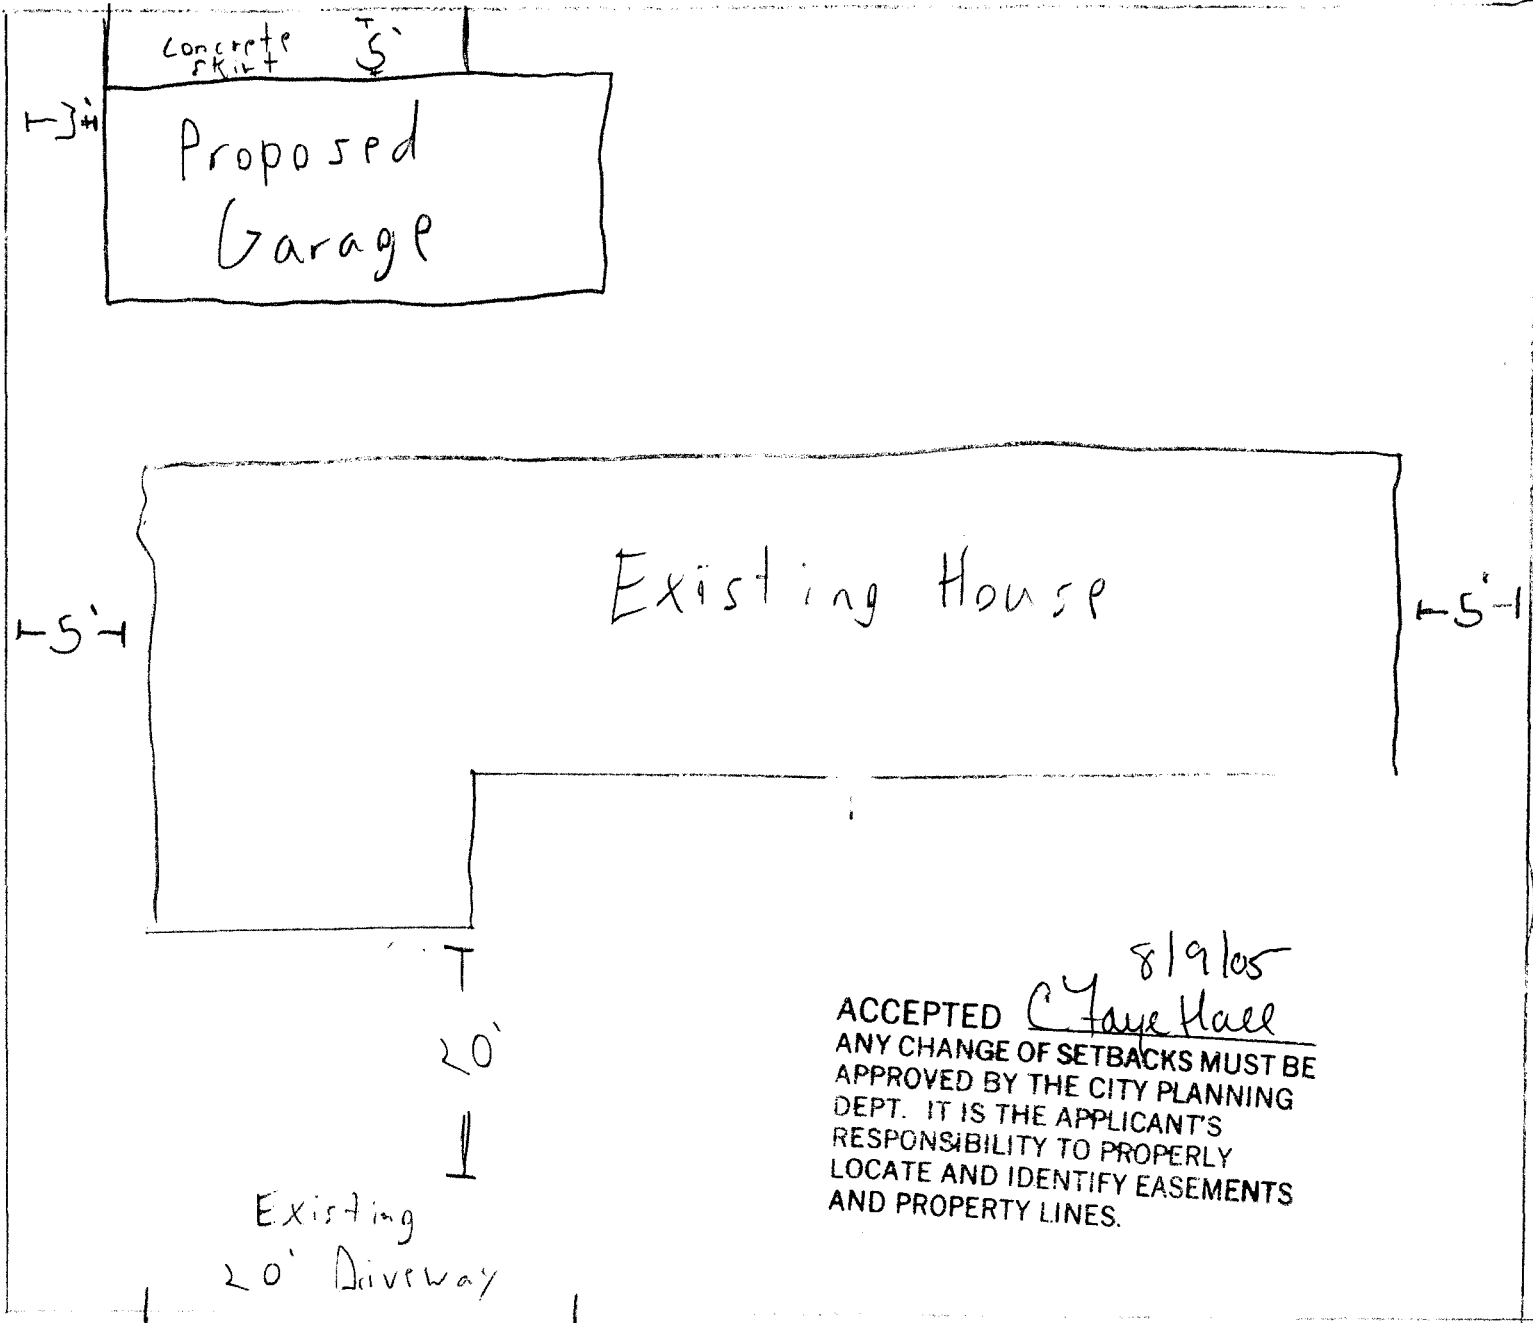 Concrete 5'
skirt
3'
Proposed
Garage
Existing House
5'
5'
20'
8/9/05
ACCEPTED C Faye Hall
ANY CHANGE OF SETBACKS MUST BE
APPROVED BY THE CITY PLANNING
DEPT. IT IS THE APPLICANT'S
RESPONSIBILITY TO PROPERLY
LOCATE AND IDENTIFY EASEMENTS
AND PROPERTY LINES.
Existing
20' Driveway